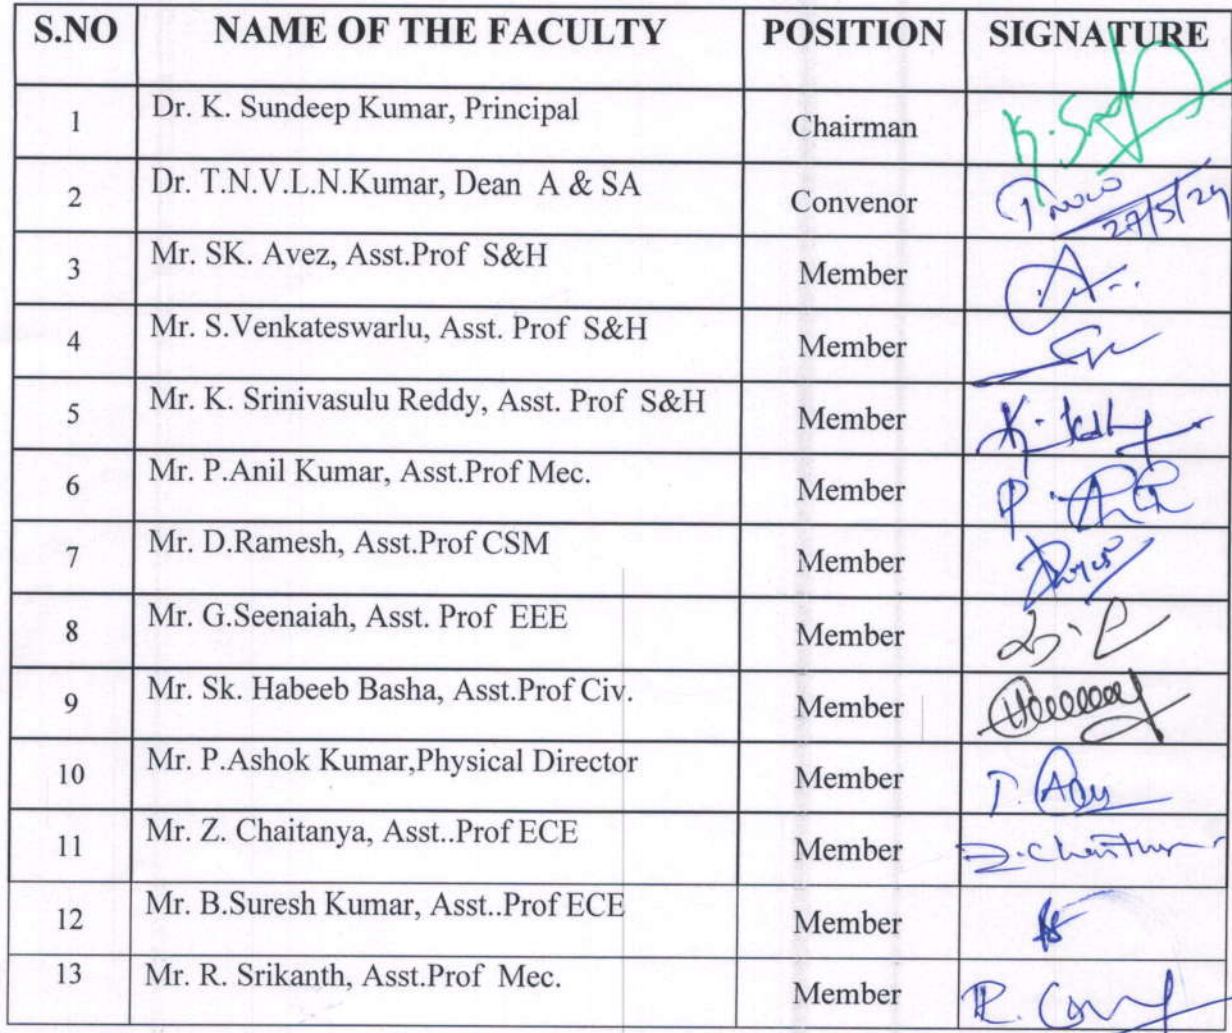 S.NO NAME OF THE FACULTY POSITION SIGNATURE
1 Dr. K. Sundeep Kumar, Principal Chairman
2 Dr. T.N.V.L.N.Kumar, Dean A & SA Convenor 27/5/24
3 Mr. SK. Avez, Asst.Prof S&H Member
4 Mr. S.Venkateswarlu, Asst. Prof S&H Member
5 Mr. K. Srinivasulu Reddy, Asst. Prof S&H Member
6 Mr. P.Anil Kumar, Asst.Prof Mec. Member
7 Mr. D.Ramesh, Asst.Prof CSM Member
8 Mr. G.Seenaiah, Asst. Prof EEE Member
9 Mr. Sk. Habeeb Basha, Asst.Prof Civ. Member
10 Mr. P.Ashok Kumar,Physical Director Member
11 Mr. Z. Chaitanya, Asst..Prof ECE Member
12 Mr. B.Suresh Kumar, Asst..Prof ECE Member
13 Mr. R. Srikanth, Asst.Prof Mec. Member